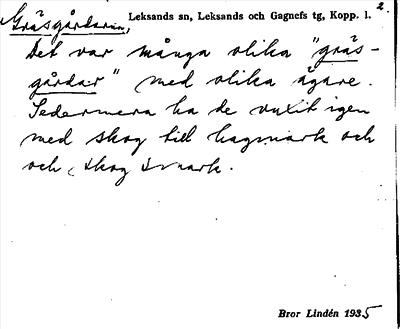 2.
Gräsgårdarna, Leksands sn, Leksands och Gagnefs tg, Kopp. l.
Det var många olika "gräs-
gårdar" med olika ägare.
Sedermera ha de vuxit igen
med skog till hagmark och
och skogsmark.
Bror Lindén 1935